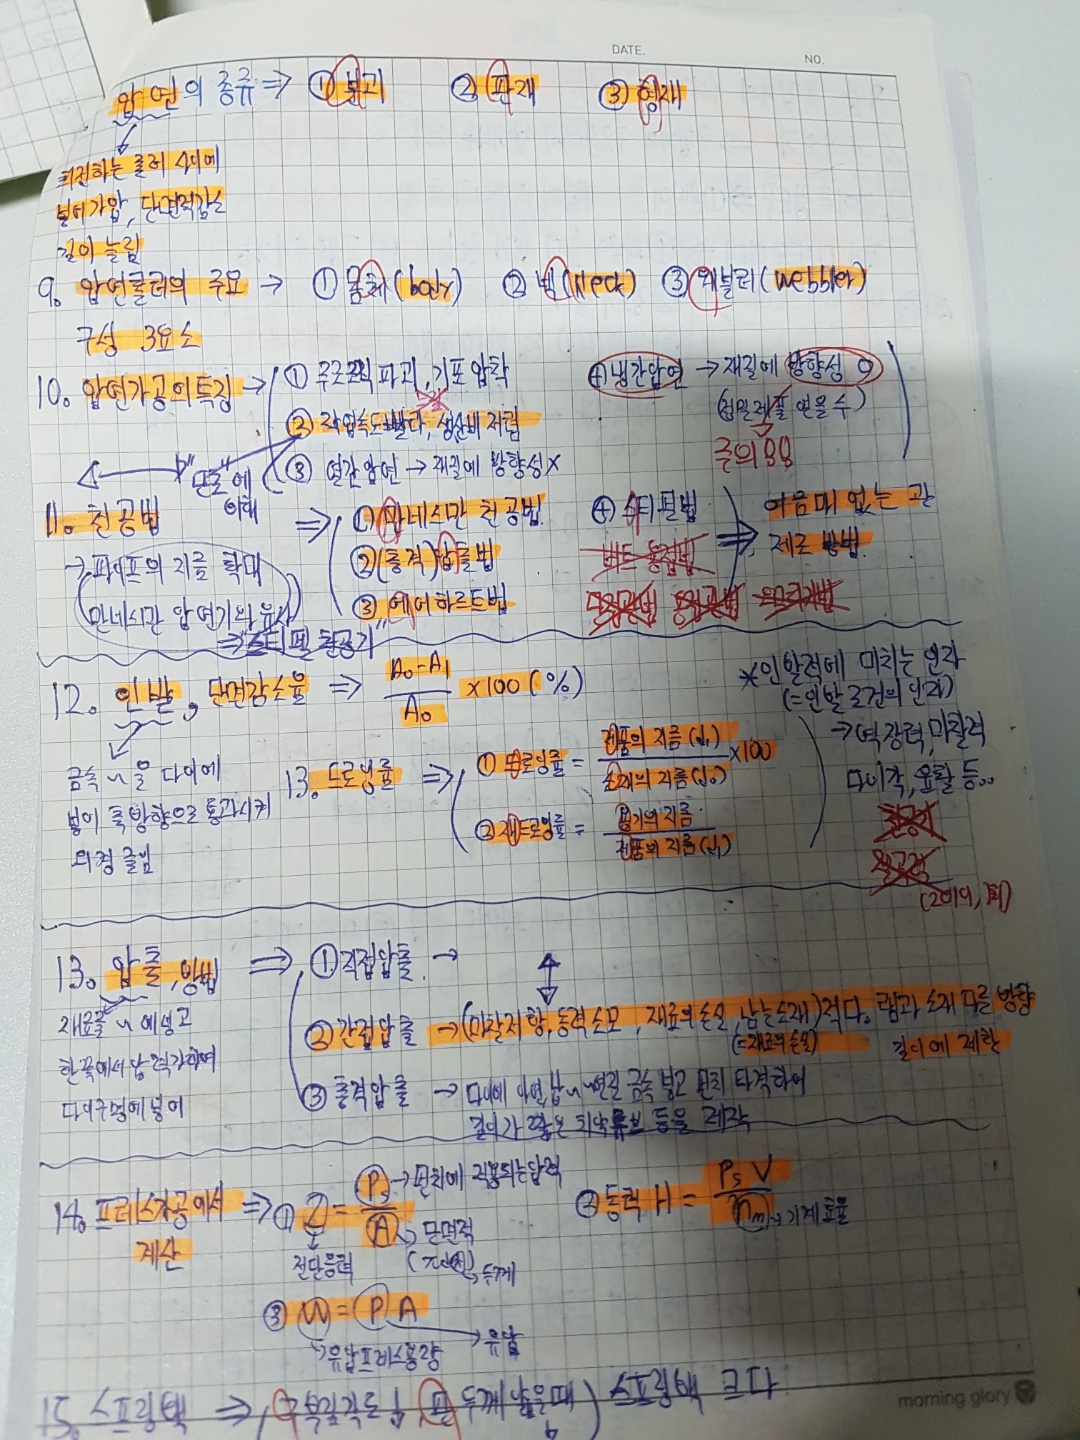 DATE.
NO.
압연의 종류 ⇒ ① 분괴 ② 판재 ③ 형재
회전하는 롤러 사이에
넣어가압, 단면적감소
길이 늘림
9. 압연롤러의 주요 → ① 몸체(body) ② 넥(Neck) ③ 웨블러(webbler)
구성 3요소
10. 압연가공의특징 → ① 주조조직 파괴, 기포압착 ④ 냉간압연 → 재질에 방향성 O
② 작업속도빠르다, 생산비 저렴
주의요망
③ 열간 압연 → 재질에 방향성 X
11. 천공법 ⇒ ① 만네스만 천공법 ④ 스티펠법 ⇒ 이음매 없는 관
→ 파이프의 지름 확대 ②(충격)압출법 제조 방법
만네스만 압연기와 유사 ③ 에어하르트법
⇒ 스티펠 천공기"
12. 인발, 단면감소율 ⇒ A₀-A₁ / A₀ ×100 (%) *인발력에 미치는 인자
(=인발조건의 인자)
→ 역장력, 마찰력
다이각, 윤활 등..
(2019, 1회)
금속 ~ 을 다이에
넣어 축방향으로 통과시켜
외경 줄임
13. 드로잉률 ⇒ ① 드로잉률 = 제품의 지름(d₁) / 소재의 지름(d₀) ×100
② 재드로잉률 = 용기의 지름 / 제품의 지름(d₁)
13. 압출, 방법 ⇒ ① 직접압출 →
재료를 ~ 에넣고
한쪽에서압력가하여
다이구멍에넣어
② 간접압출 → (마찰저항, 동력소모, 재료의손실, 남는소재)적다. 램과 소재 다른 방향
(=재료의손실) 길이에 제한
③ 충격압출 → 다이에 아연,납 ~ ~ 연질 금속 넣고 펀치 타격하여
길이가 짧은 치약튜브 등을 제작
14. 프레스가공에서 ⇒ ① τ = Ps / A ② 동력 H = Ps V / ηm → 기계효율
계산
→ 펀치에 작용되는압력
→ 단면적
두께
전단응력
③ W = P A
→ 유압프레스용량
유압
15. 스프링백 ⇒ 스프링백 크다.
morning glory